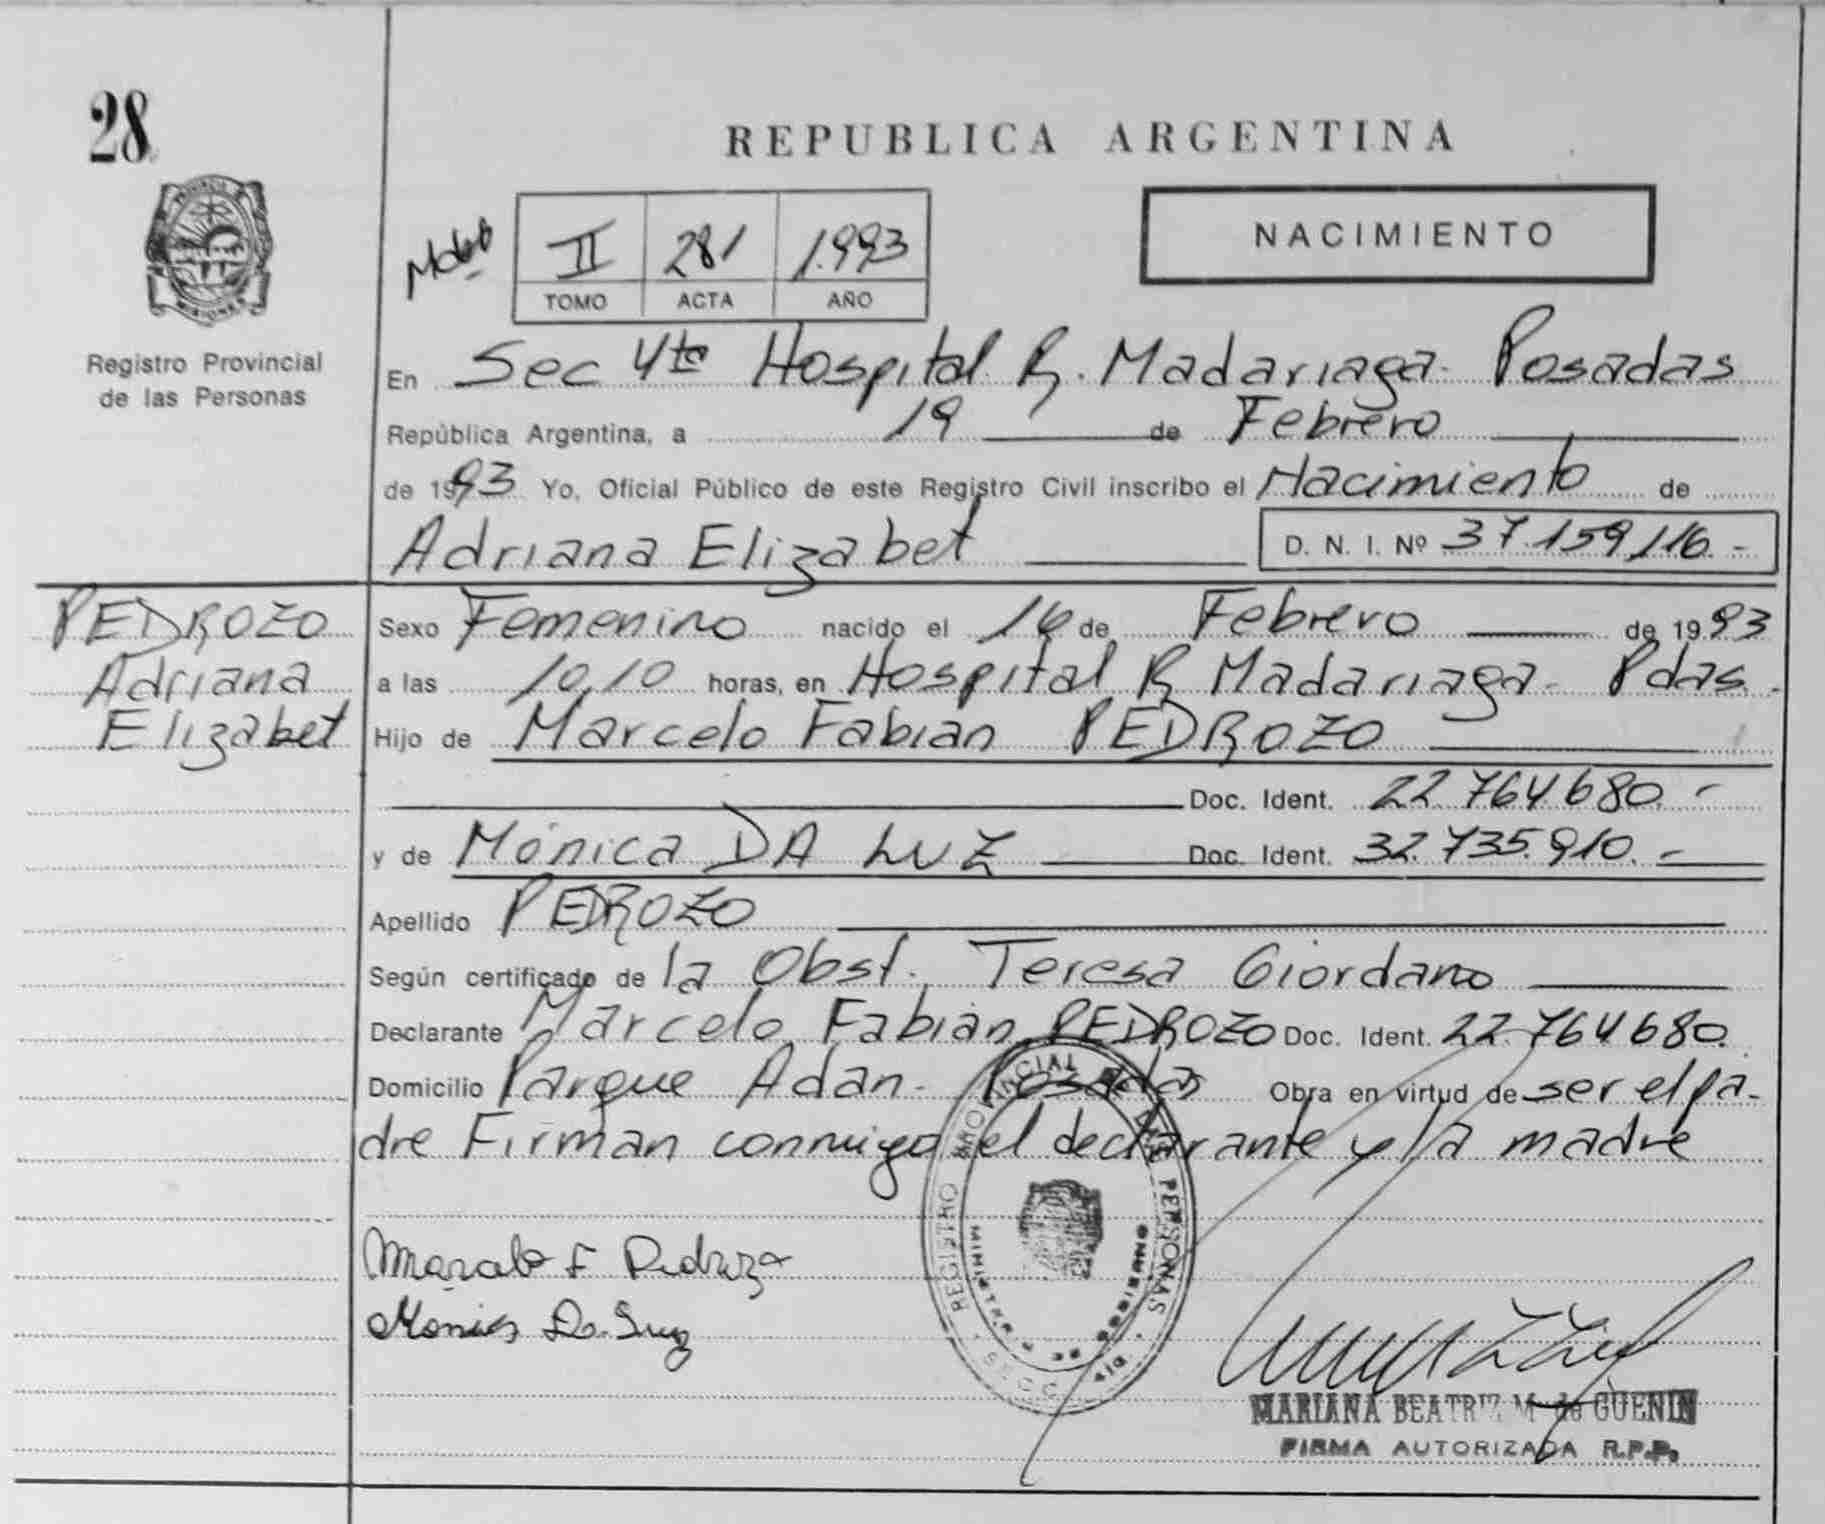 28
REPUBLICA ARGENTINA
II 281 1.993
TOMO ACTA AÑO
NACIMIENTO
PROVINCIA DE
MISIONES
Registro Provincial
de las Personas
En Sec 4ta Hospital R. Madariaga. Posadas
República Argentina, a 19 de Febrero
de 1993 Yo, Oficial Público de este Registro Civil inscribo el Nacimiento de
Adriana Elizabet D. N. I. Nº 37.159.116.-
PEDROZO
Adriana
Elizabet
Sexo Femenino nacido el 16 de Febrero de 1993
a las 10,10 horas, en Hospital R Madariaga - Pdas.
Hijo de Marcelo Fabian PEDROZO
Doc. Ident. 22.764.680.-
y de Mónica DA LUZ Doc. Ident. 32.735.910.-
Apellido PEDROZO
Según certificado de la Obst. Teresa Giordano
Declarante Marcelo Fabián PEDROZO Doc. Ident. 22.764.680.
Domicilio Parque Adan - Posadas Obra en virtud de ser el pa-
dre Firman conmigo el declarante y la madre
REGISTRO PROVINCIAL DE LAS PERSONAS
MISIONES
Monica Da Luz
MARIANA BEATRIZ M de GUENIN
FIRMA AUTORIZADA R.P.P.